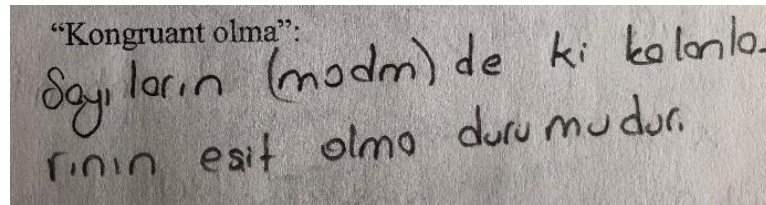 “Kongruant olma”:
Sayıların (modm) de ki kalanla-
rının eşit olma durumudur.